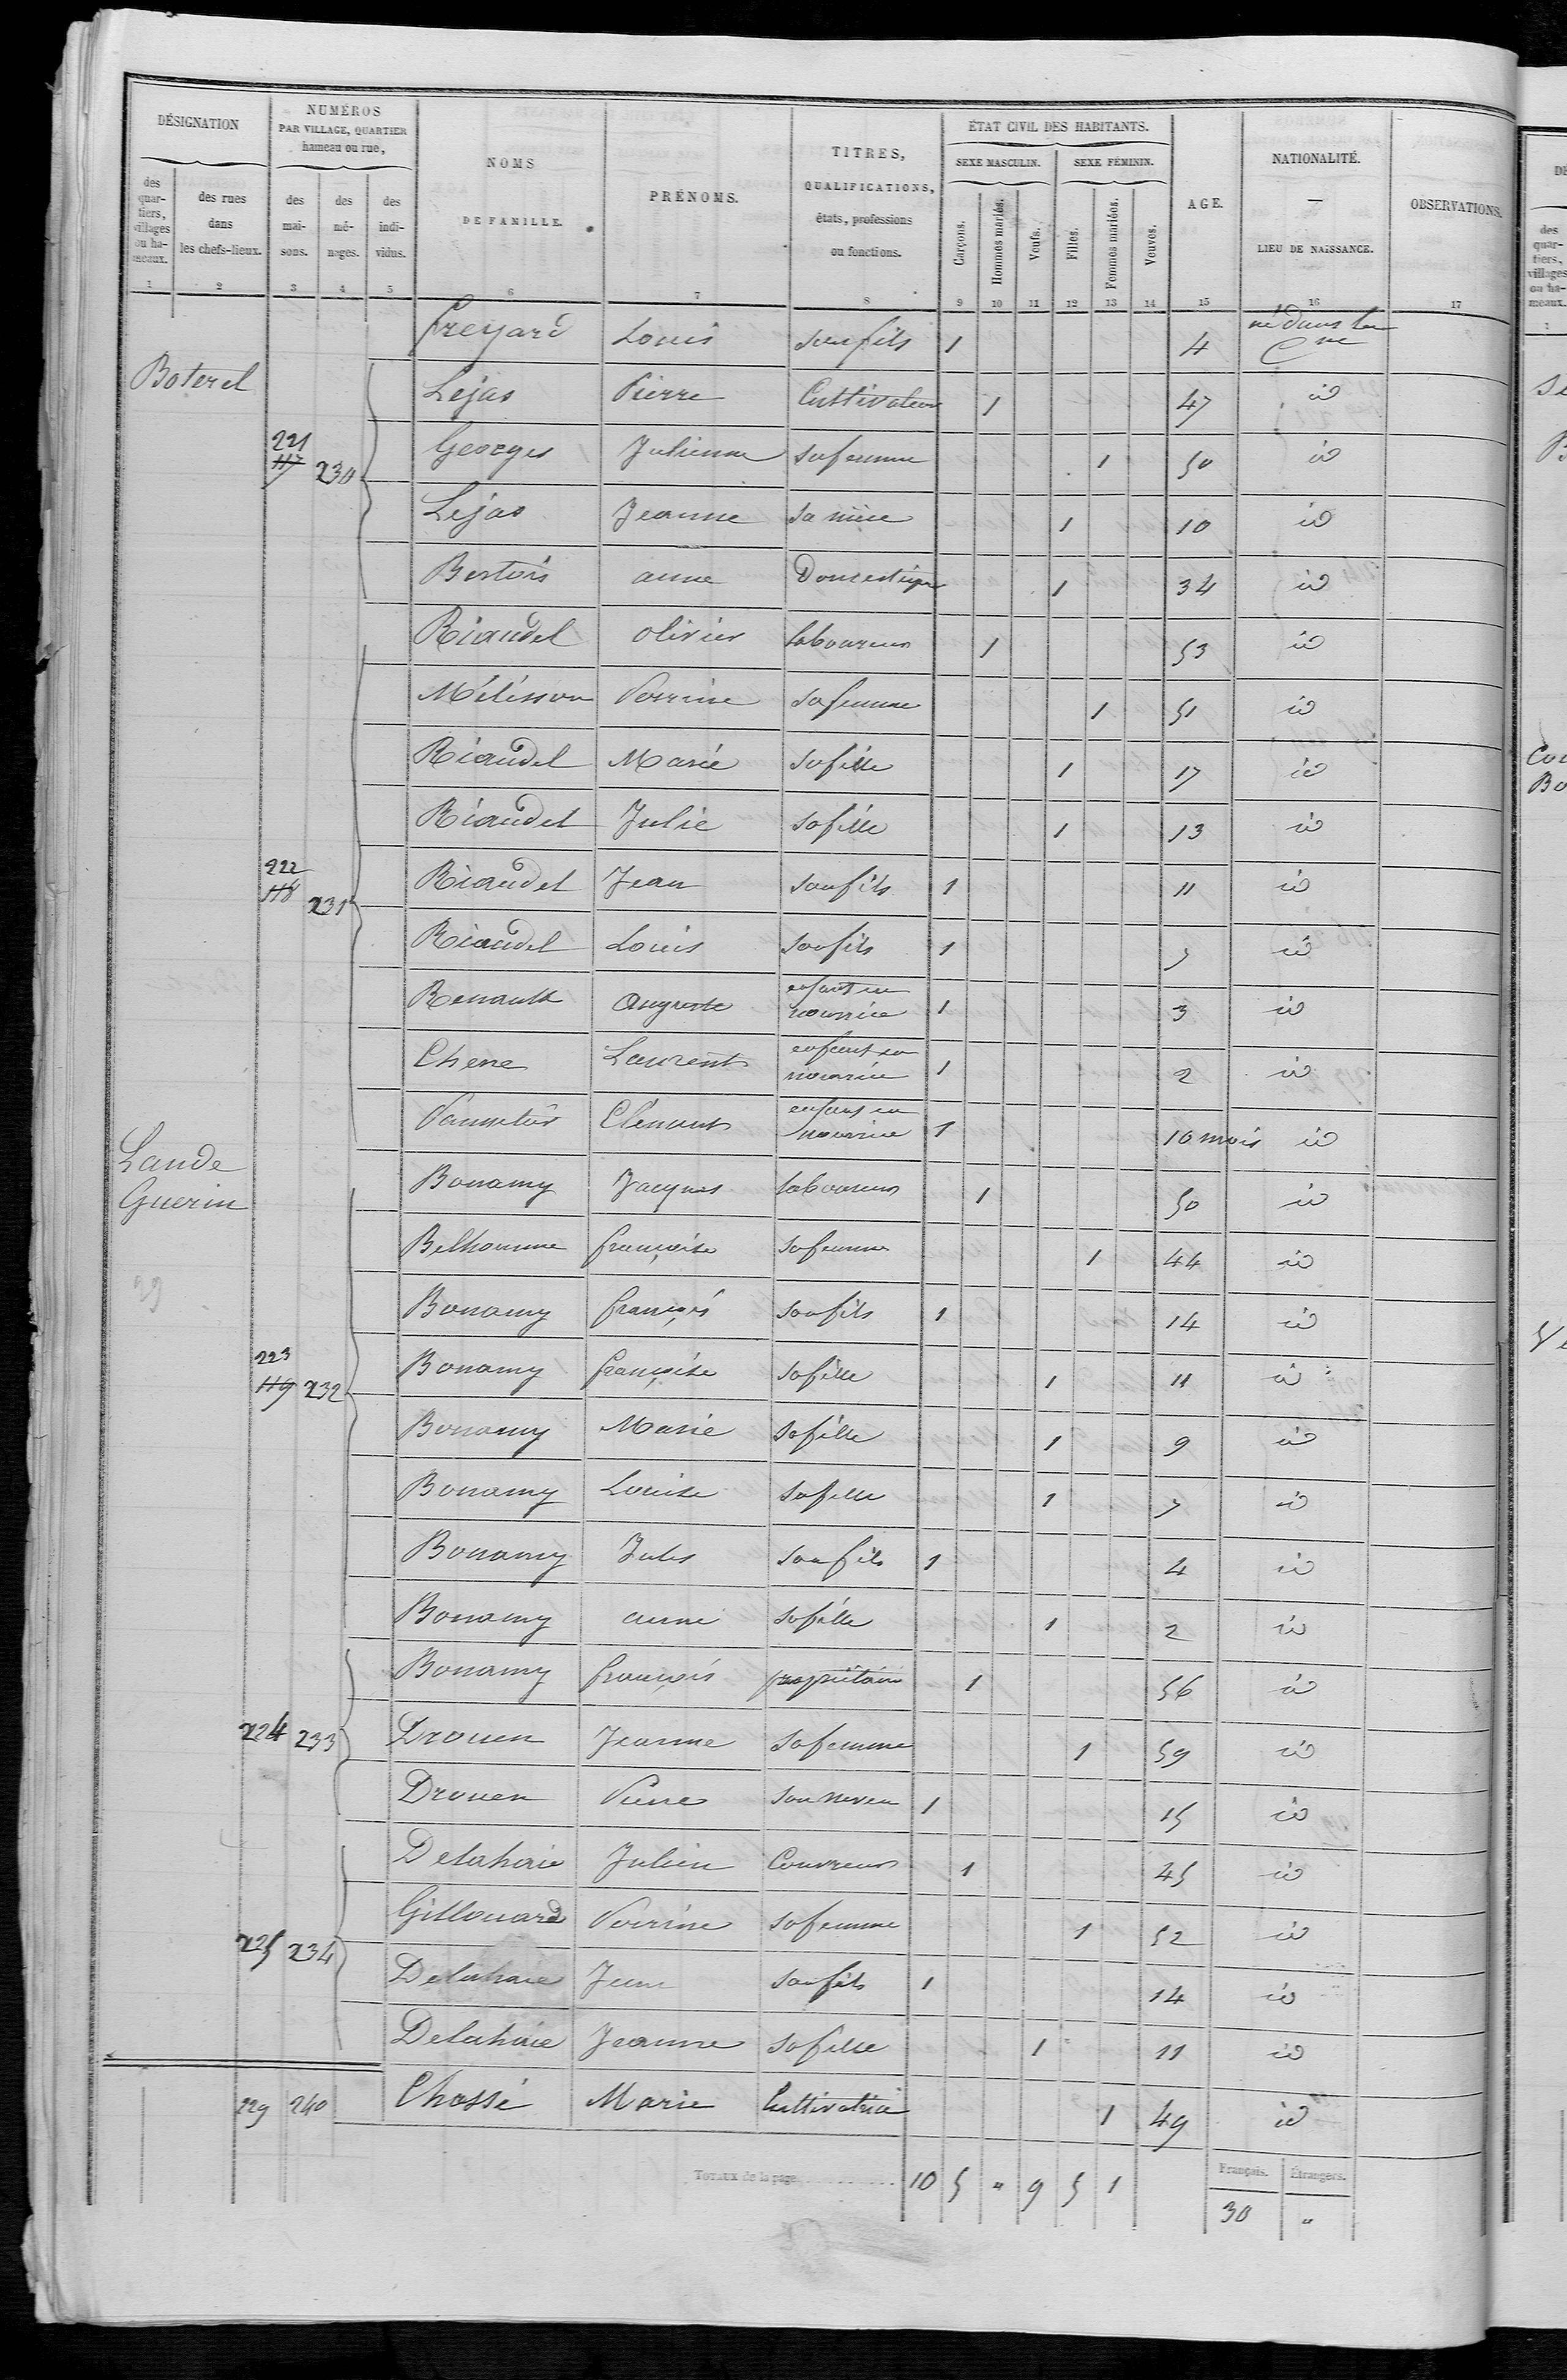 DÉSIGNATION
NUMÉROS
PAR VILLAGE, QUARTIER
hameau ou rue,
NOMS
DE FAMILLE.
PRÉNOMS.
TITRES,
QUALIFICATIONS,
états, professions
ou fonctions.
ÉTAT CIVIL DES HABITANTS.
SEXE MASCULIN. SEXE FÉMININ.
AGE.
NATIONALITÉ.
—
LIEU DE NAISSANCE.
OBSERVATIONS.
des quar- tiers, villages ou ha- meaux.
des rues dans les chefs-lieux.
des mai- sons.
des mé- nages.
des indi- vidus.
Garçons. Hommes mariés. Veufs. Filles. Femmes mariées. Veuves.
1 2 3 4 5 6 7 8 9 10 11 12 13 14 15 16 17
freyard Louis son fils 1 4 né dans la Cne
Boterel
Lejas Pierre Cultivateur 1 47 id
221 117 230 Georges Julienne sa femme 1 50 id
Lejas Jeanne sa nièce 1 10 id
Bertois anne Domestique 1 34 id
Riaudel olivier laboureur 1 53 id
Mélisson Perrine sa femme 1 51 id
Riaudel Marie sa fille 1 17 id
Riaudel Julie sa fille 1 13 id
222 118 231 Riaudel Jean son fils 1 11 id
Riaudel Louis son fils 1 5 id
Renault auguste enfant en nourrice 1 3 id
Chene Laurent enfant en nourrice 1 2 id
Clément enfant en nourrice 1 10 mois id
Lande Guerin
Bonamy Jacques laboureur 1 50 id
Belhomme françoise sa femme 1 44 id
Bonamy françois son fils 1 14 id
223 119 232 Bonamy françoise sa fille 1 11 id
Bonamy Marie sa fille 1 9 id
Bonamy Louise sa fille 1 7 id
Bonamy Jules son fils 1 4 id
Bonamy anne sa fille 1 2 id
Bonamy françois propriétaire 1 56 id
224 233 Drouen Jeanne sa femme 1 59 id
Drouen Pierre son neveu 1 15 id
Delahaie Julien Couvreur 1 45 id
225 234 Gillouard Perrine sa femme 1 52 id
Delahaie Jean son fils 1 14 id
Delahaie Jeanne sa fille 1 11 id
229 240 Chassé Marie Cultivatrice 1 49 id
TOTAUX de la page 10 5 " 9 5 1
Français. Étrangers.
30 "